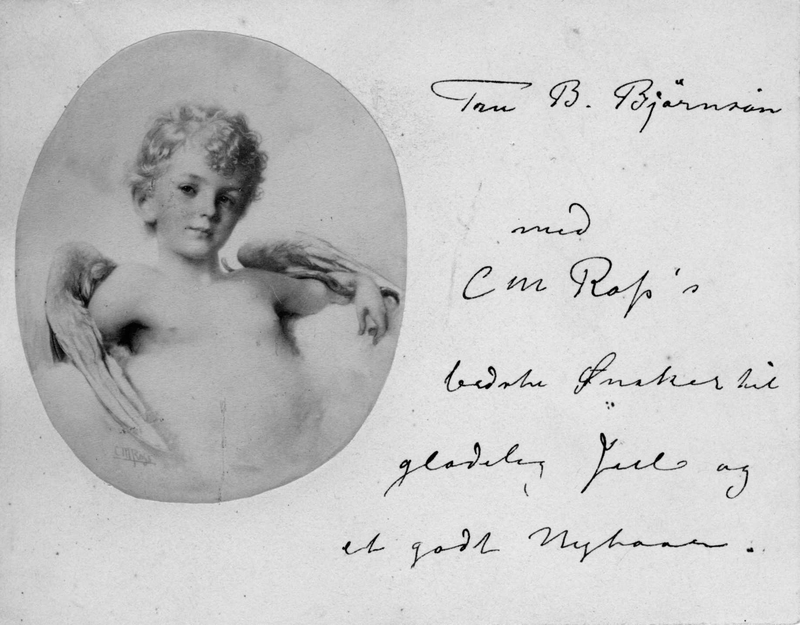 Fru B. Björnson
med
C M Roß's
bedste Ønsker til
glædelig Juul og
et godt Nytaar.
CMRoß